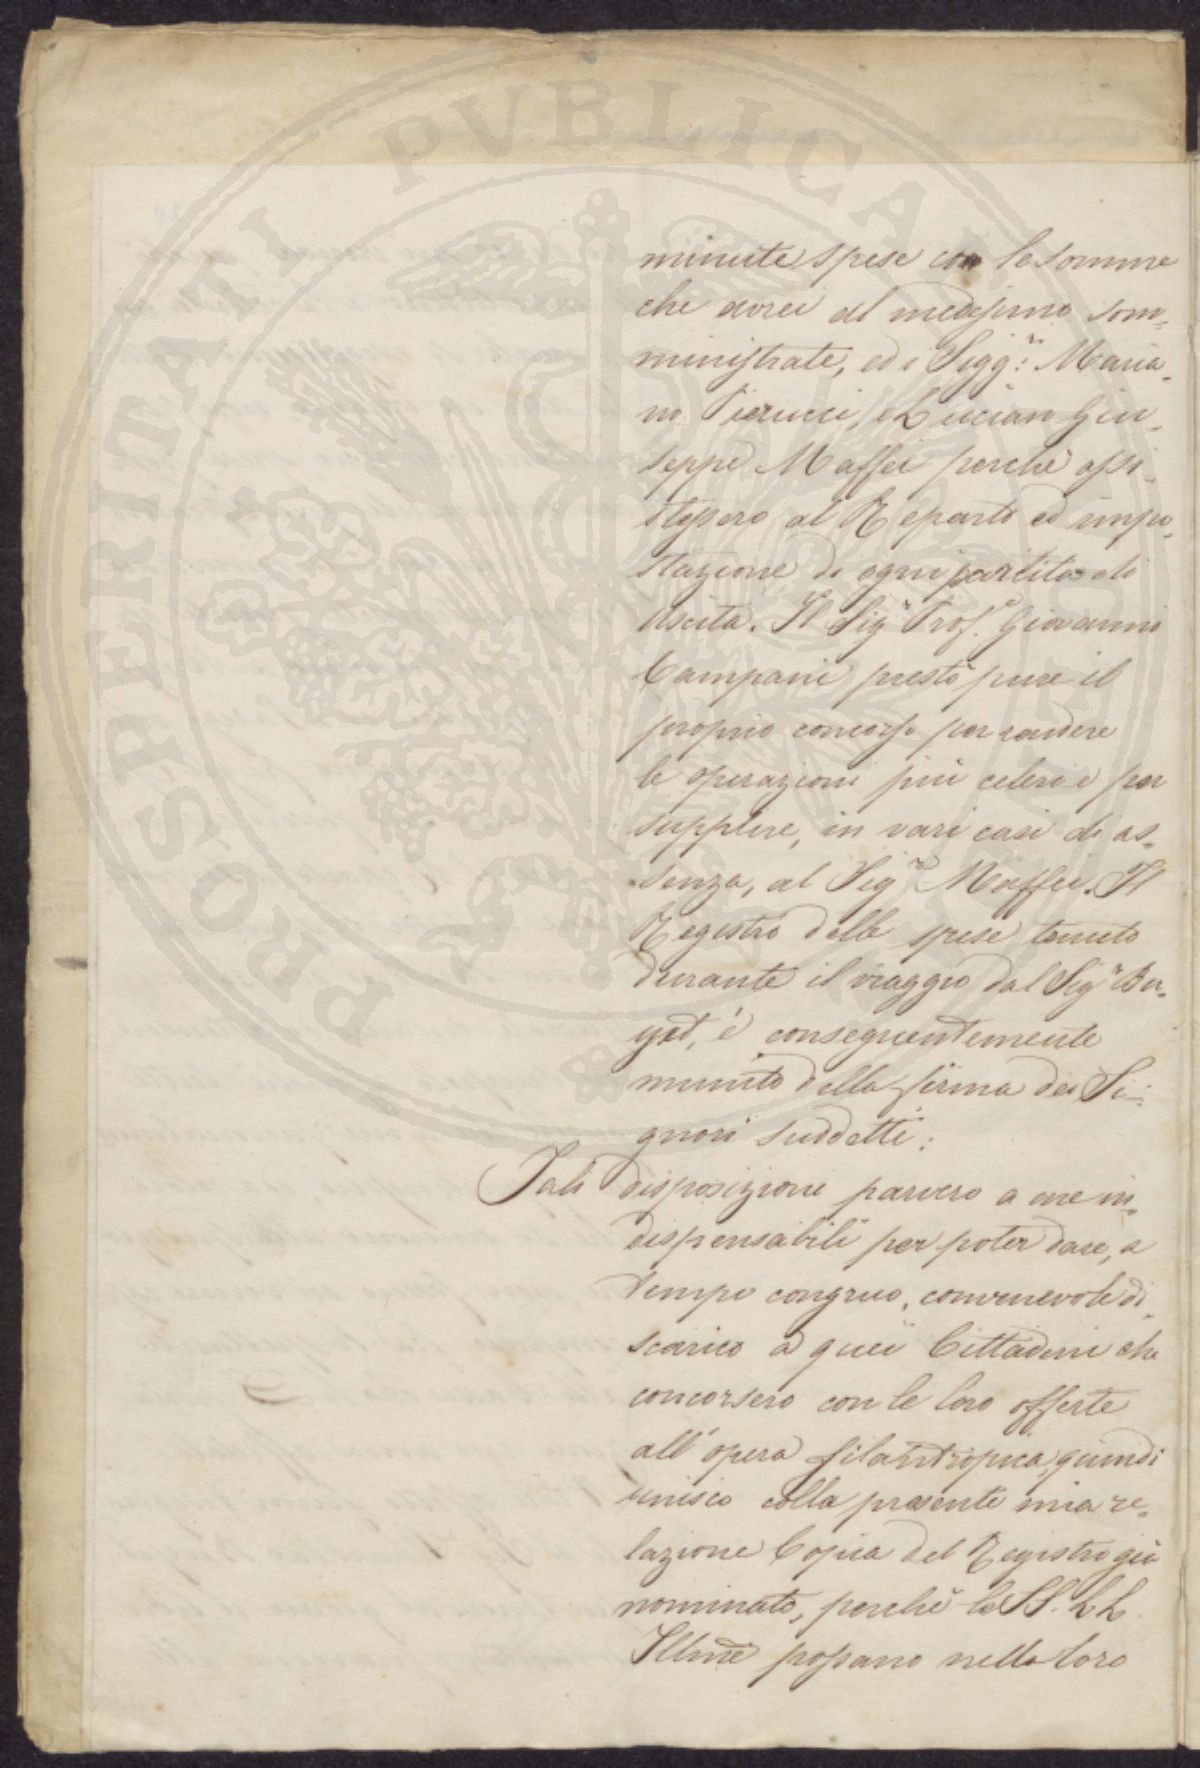 PROSPERITATI PVBLICAE
minute spese con le somme
che avrei al medesimo som=
ministrate, ed i Sigg:ri Maria=
no Pierucci, e Luciano Giu=
seppe Maffei perchè assi=
stessero al Reparto ed impo=
stazione di ogni partita di
uscita. Il Sigr Prof.e Giovanni
Campani prestò pure il
proprio concorso per rendere
le operazioni più celeri e per
supplire, in vari casi di as=
senza, al Sigre Maffei. Il
Registro delle spese tenuto
durante il viaggio dal Sigr Bu=
yet, è conseguentemente
munito della firma dei Si=
gnori suddetti:
Tali disposizioni parvero a me in=
dispensabili per poter dare, a
tempo congruo, convenevole di=
scarico a quei Cittadini che
concorsero con le loro offerte
all'opera filantropica, quindi
unisco colla presente mia re=
lazione Copia del Registro già
nominato, perchè le SS. LL.
Illme possano nella loro